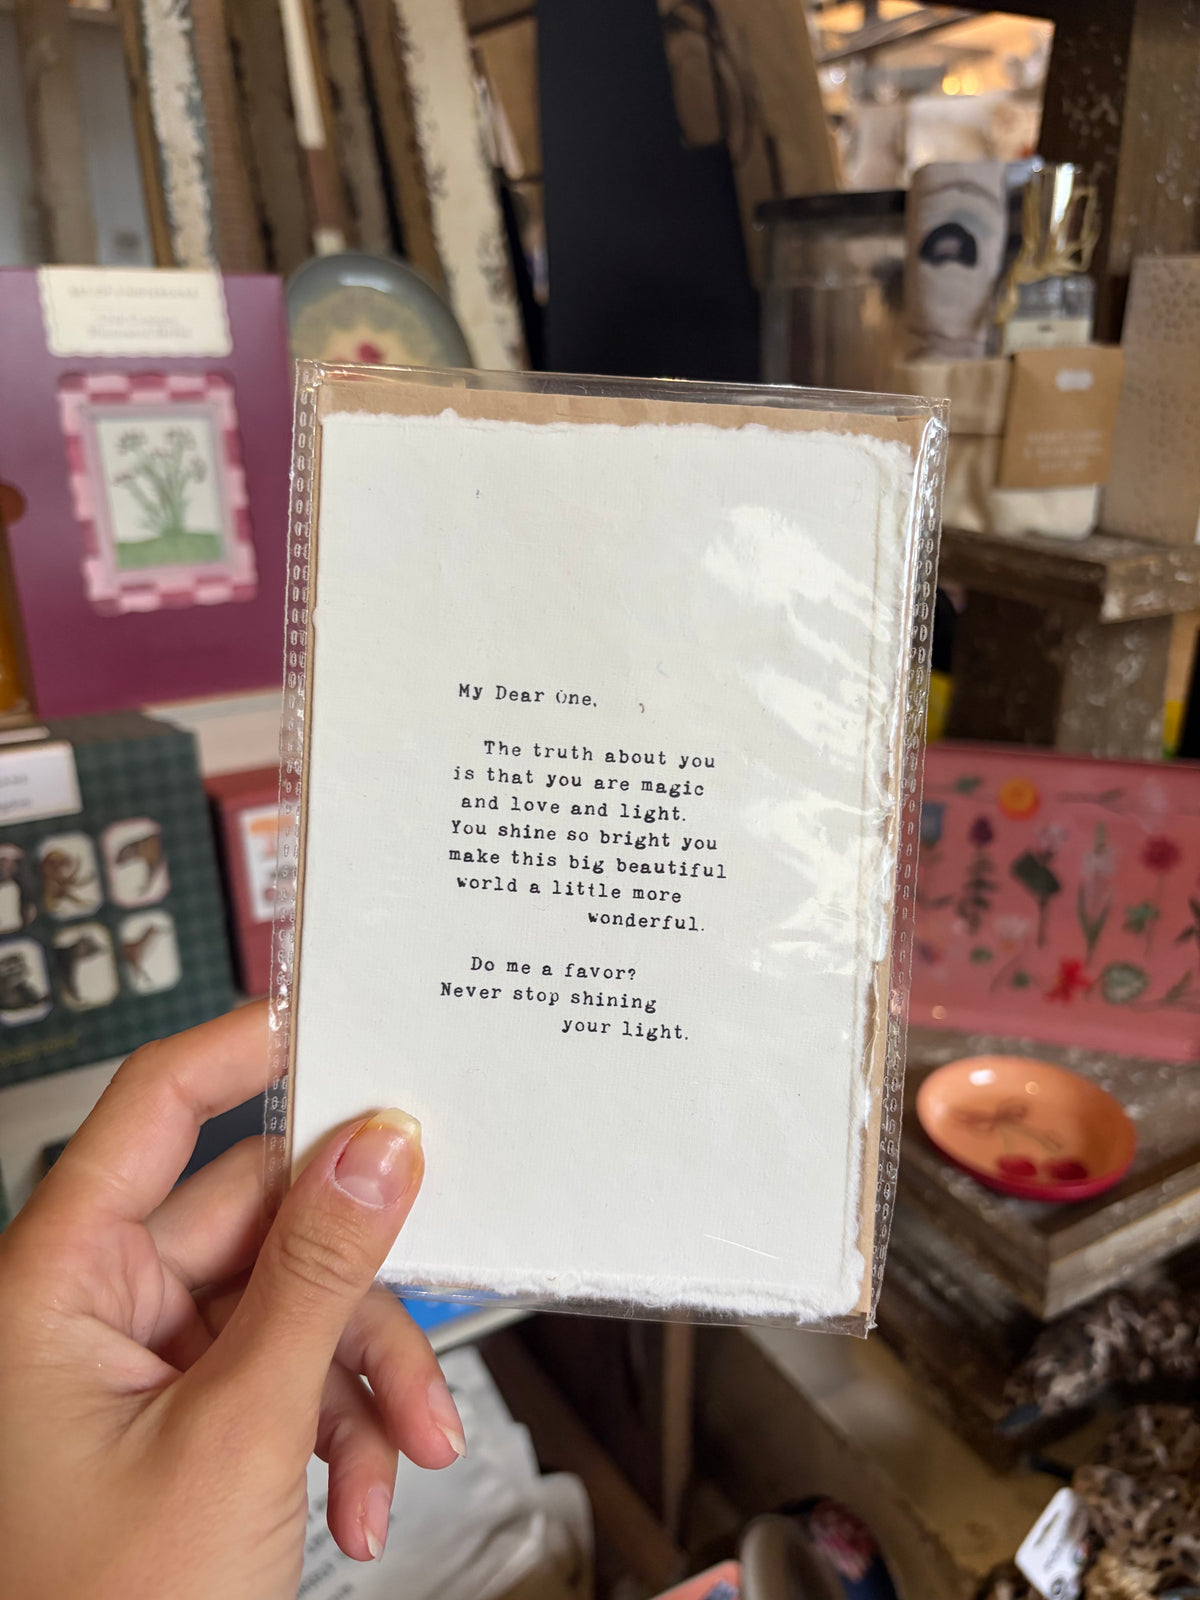 My Dear One,
The truth about you
is that you are magic
and love and light.
You shine so bright you
make this big beautiful
world a little more
wonderful.
Do me a favor?
Never stop shining
your light.